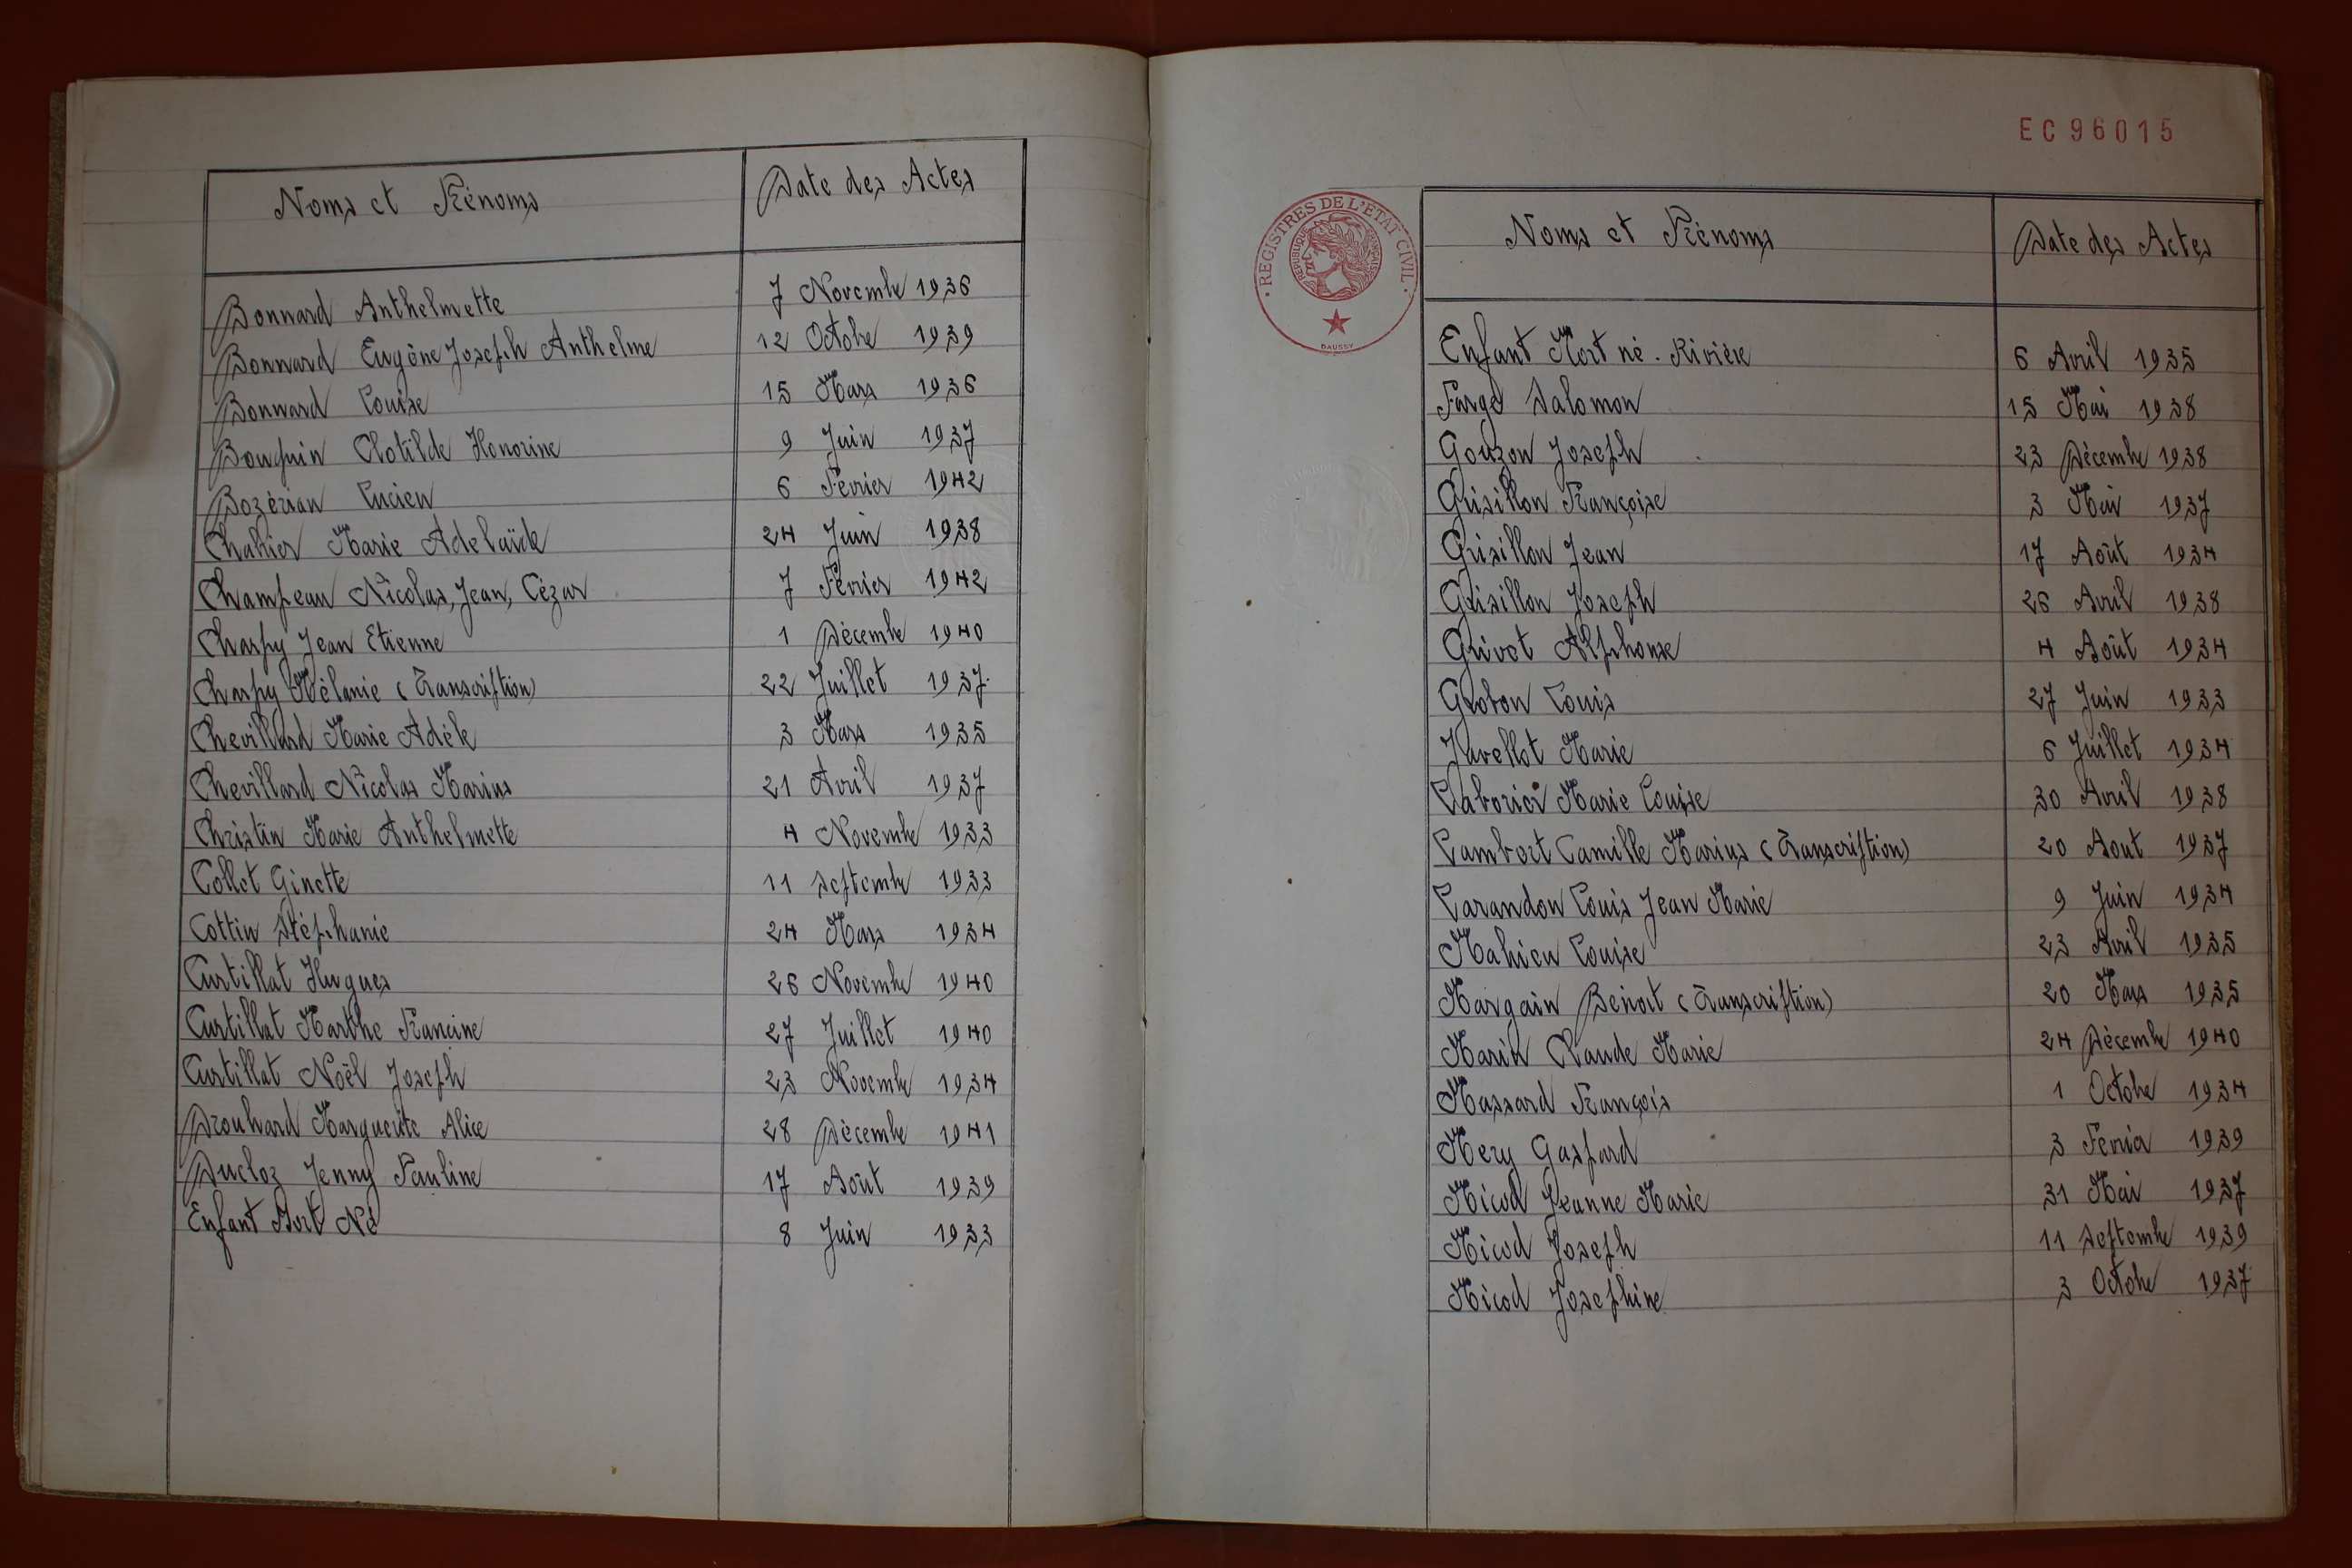 Noms et Prénoms Date des Actes
Bonnard Anthelmette 7 Novembre 1936
Bonnard Eugène Joseph Anthelme 12 Octobre 1939
Bonnard Louise 15 Mars 1936
Bouquin Clotilde Honorine 9 Juin 1937
Bozérian Lucien 6 Février 1942
Chahier Marie Adelaïde 24 Juin 1938
Champeau Nicolas, Jean, Cézar 7 Février 1942
Charpy Jean Etienne 1 Décembre 1940
Charpy Mélanie (Transcription) 22 Juillet 1937
Chevillard Marie Adèle 3 Mars 1935
Chevillard Nicolas Marius 21 Avril 1937
Christin Marie Anthelmette 4 Novembre 1933
Collet Ginette 11 Septembre 1933
Cottin Stéphanie 24 Mars 1934
Curtillat Hugues 26 Novembre 1940
Curtillat Marthe Francine 27 Juillet 1940
Curtillat Noël Joseph 23 Novembre 1934
Drouhard Marguerite Alice 28 Décembre 1941
Ducloz Jenny Pauline 17 Août 1939
Enfant Mort Né 8 Juin 1933
EC96015
REGISTRES DE L'ETAT CIVIL
REPUBLIQUE FRANÇAISE
DAUSSY
Noms et Prénoms Date des Actes
Enfant Mort né. Rivière 6 Avril 1935
Farge Salomon 15 Mai 1938
Gouzon Joseph 23 Décembre 1938
Grisillon Françoise 3 Mai 1937
Grisillon Jean 17 Août 1934
Grisillon Joseph 26 Avril 1938
Grivet Alphonse 4 Août 1934
Grobon Louis 27 Juin 1933
Javellot Marie 6 Juillet 1934
Laborier Marie Louise 30 Avril 1938
Lambert Camille Marius (Transcription) 20 Aout 1937
Larandon Louis Jean Marie 9 Juin 1934
Mahieu Louise 23 Avril 1935
Margain Benoit (Transcription) 20 Mars 1935
Marin Claude Marie 24 Décembre 1940
Massard François 1 Octobre 1934
Mery Gaspard 3 Février 1939
Micod Jeanne Marie 31 Mai 1937
Micod Joseph 11 Septembre 1939
Micod Josephine 3 Octobre 1937